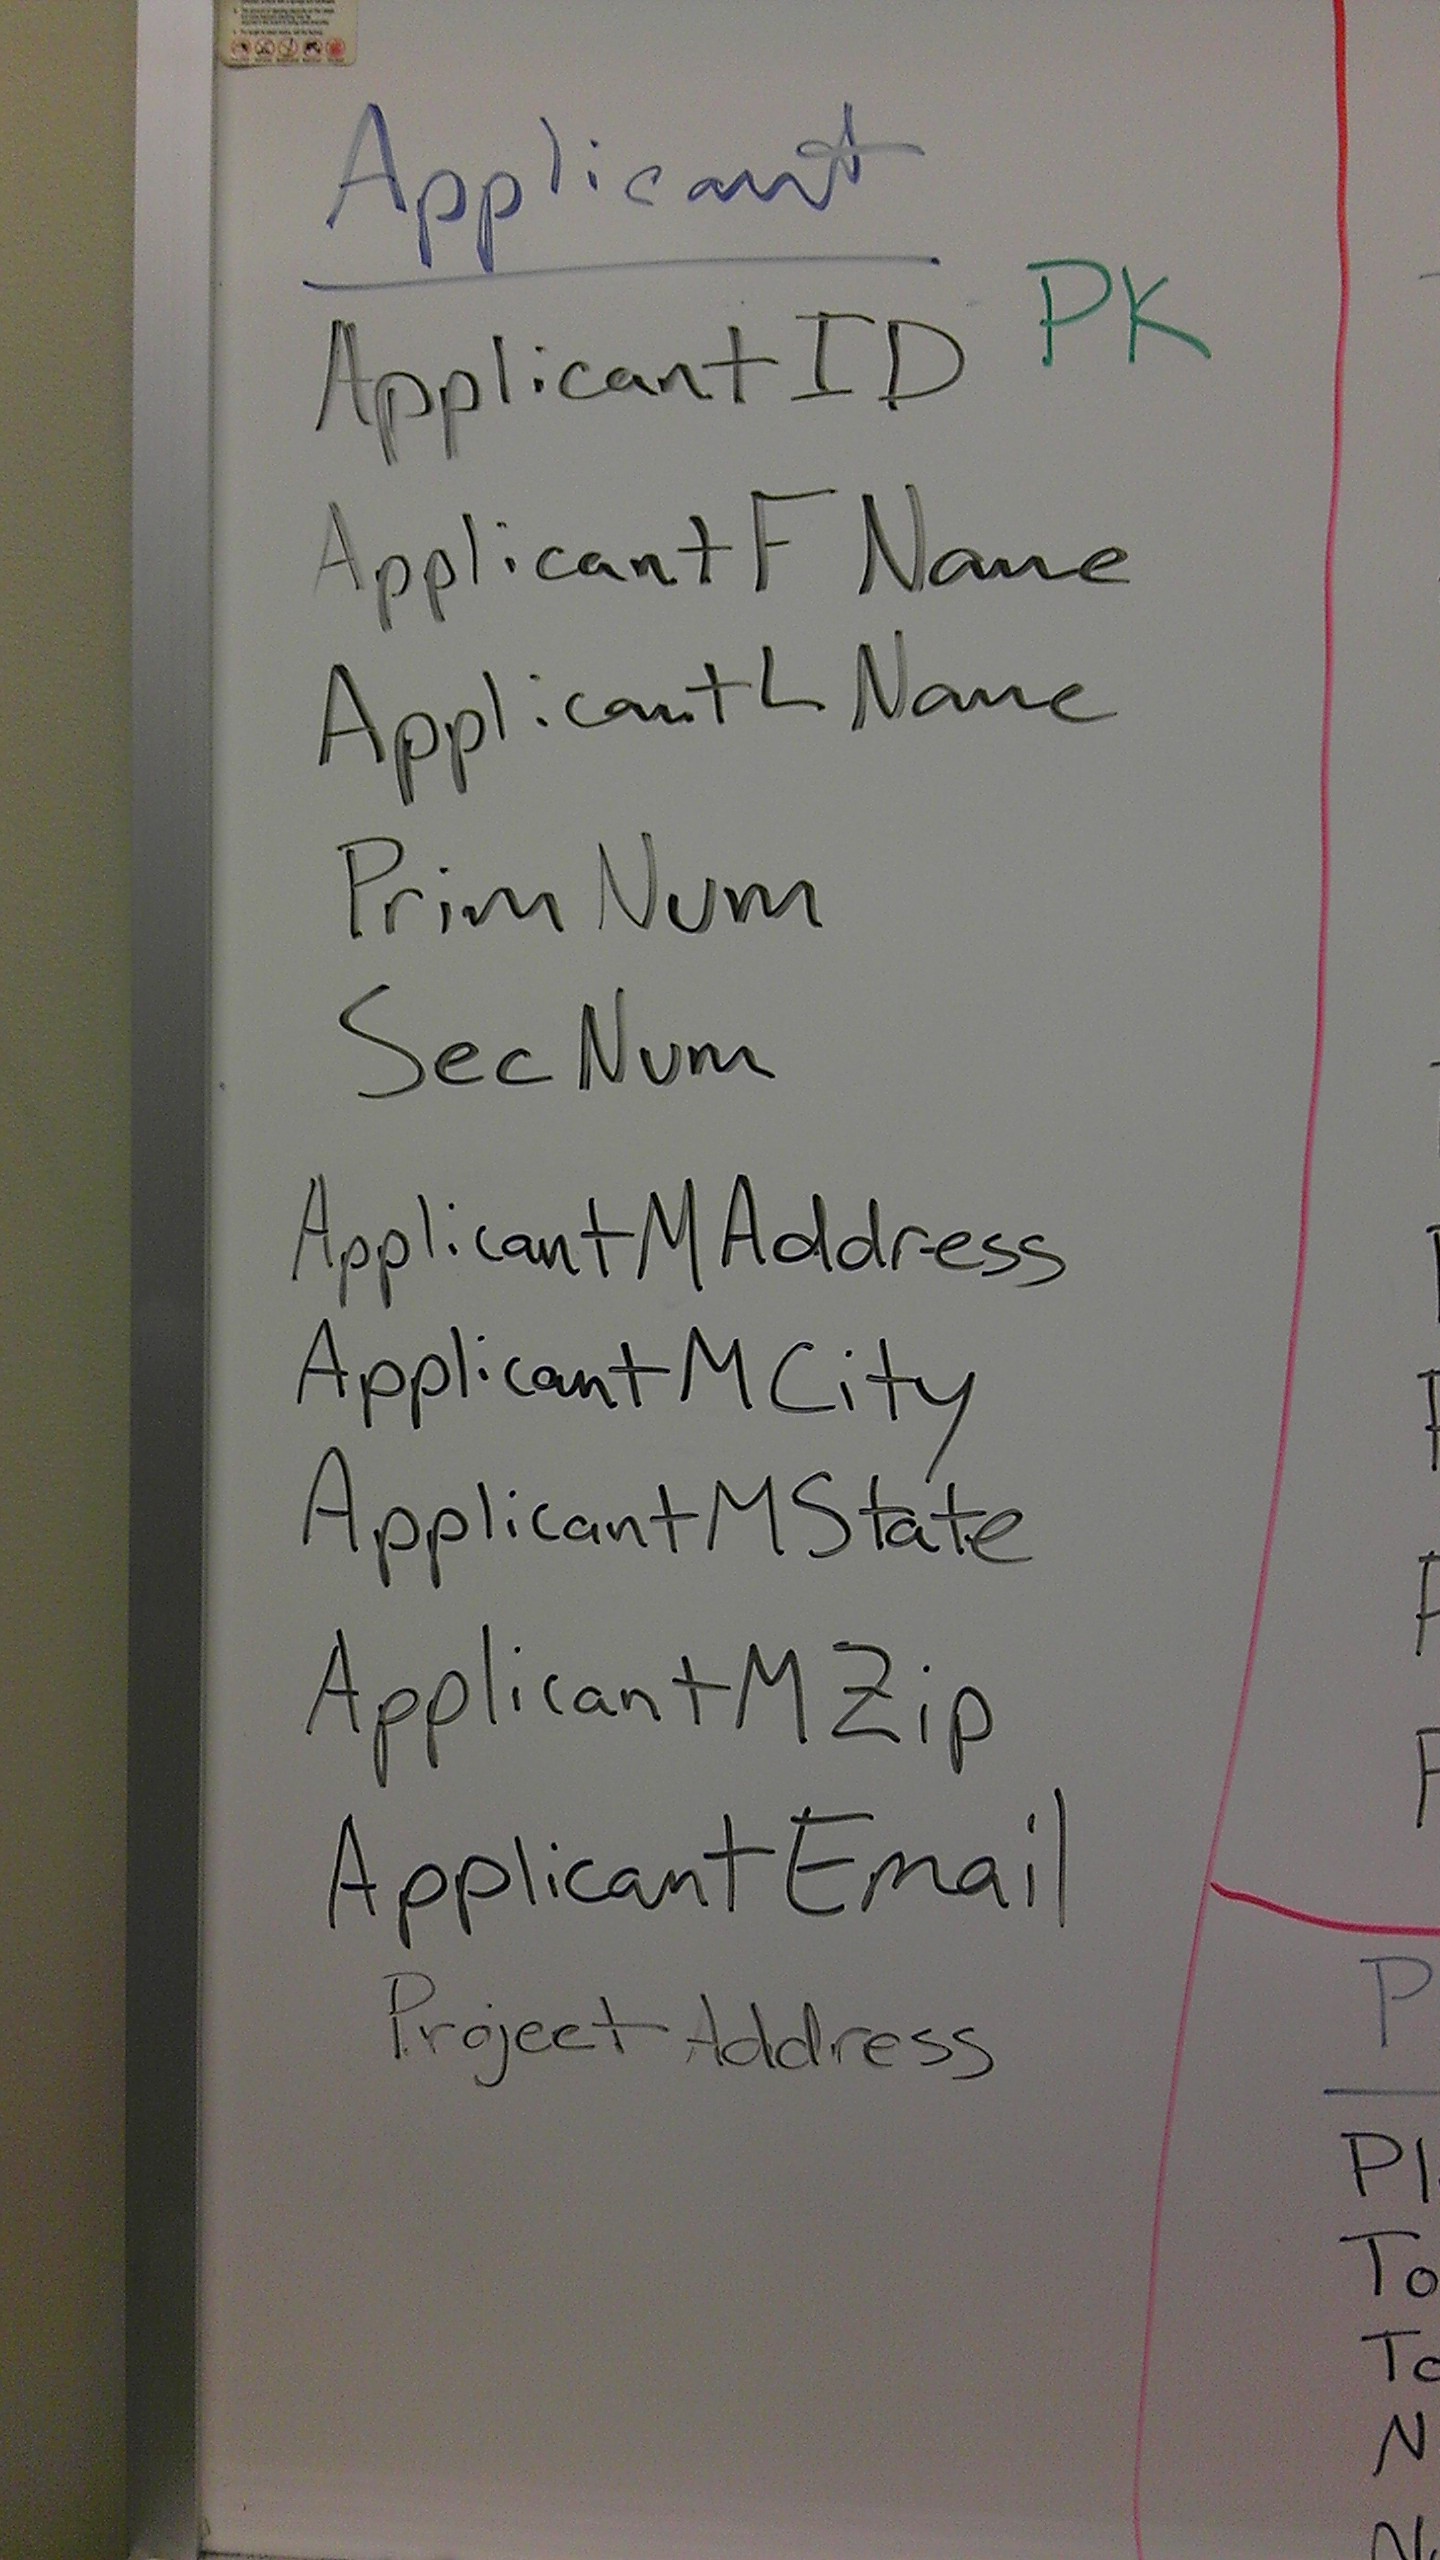 Applicant
ApplicantID PK
ApplicantFName
ApplicantLName
PrimNum
SecNum
ApplicantMAddress
ApplicantMCity
ApplicantMState
ApplicantMZip
ApplicantEmail
ProjectAddress
P
Pl
To
To
N